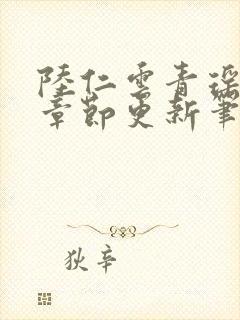 陸仁雲青瑶
章節更新筆
狄辛